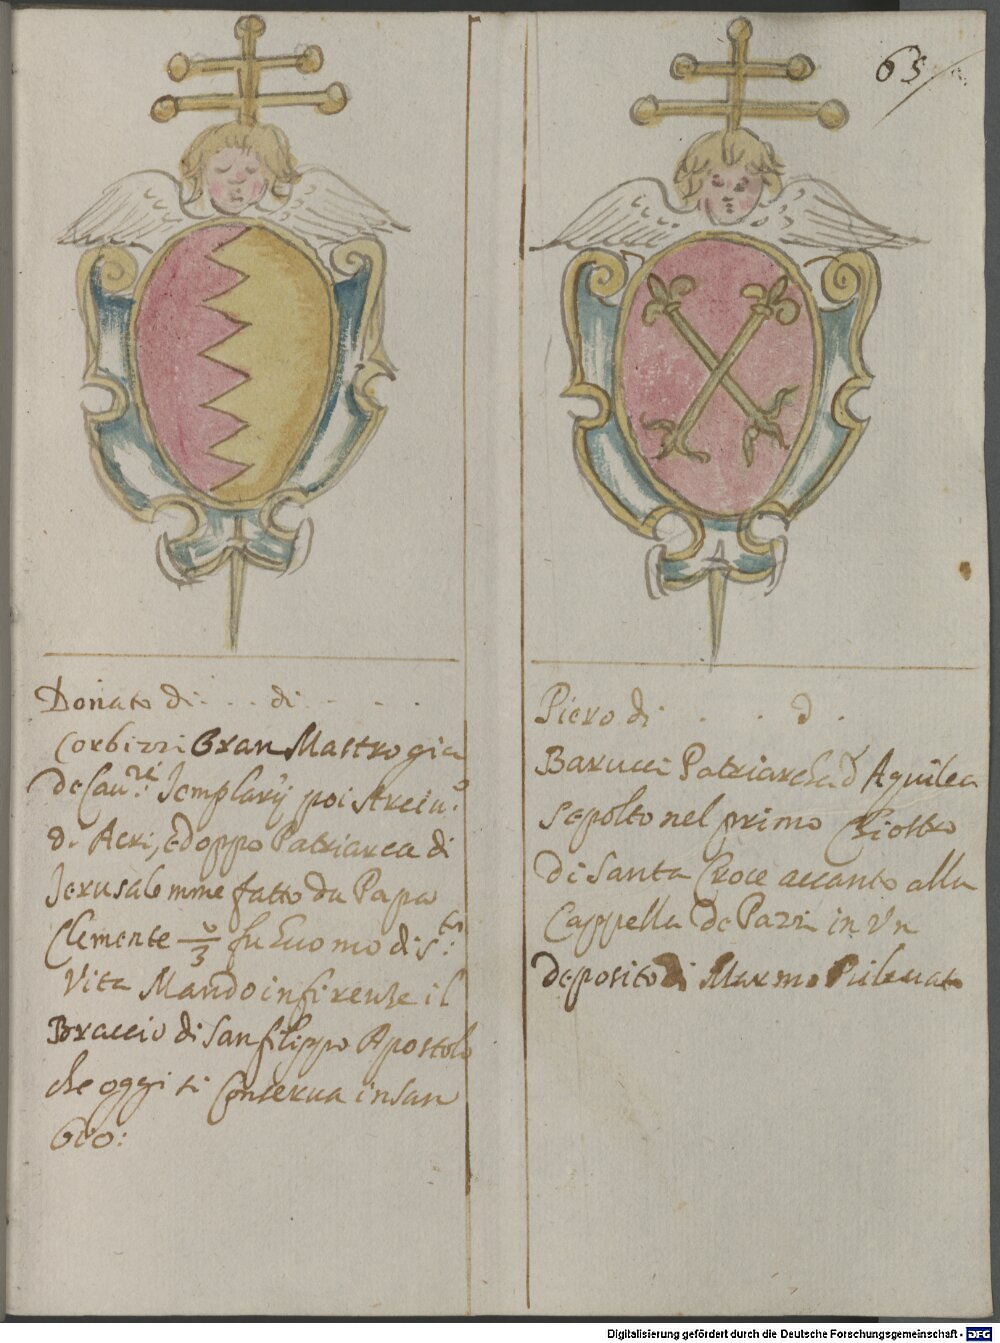 65
Donato di . . . di . . . .
Corbizzi Gran Mastro gia
de Cau.ri Templarij poi Arciu.o
di Acri, e doppo Patriarca di
Jerusalemme fatto da Papa
Clemente fu Euomo di S.ta
Vita Mando in firenze il
Braccio di San filippo Apostolo
che oggi si Conserua in San
Gio:
Piero di . . . d .
Barucci Patriarcha d Aquilea
sepolto nel primo Chiostro
di Santa Croce accanto alla
Cappella de Pazzi in Vn
deposito di Marmo Rileuato
Digitalisierung gefördert durch die Deutsche Forschungsgemeinschaft - DFG